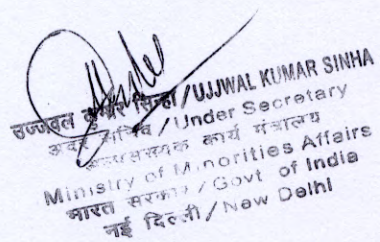 उज्जवल कुमार सिन्हा/UJJWAL KUMAR SINHA
अवर सचिव/Under Secretary
अल्पसंख्यक कार्य मंत्रालय
Ministry of Minorities Affairs
भारत सरकार/Govt of India
नई दिल्ली/New Delhi